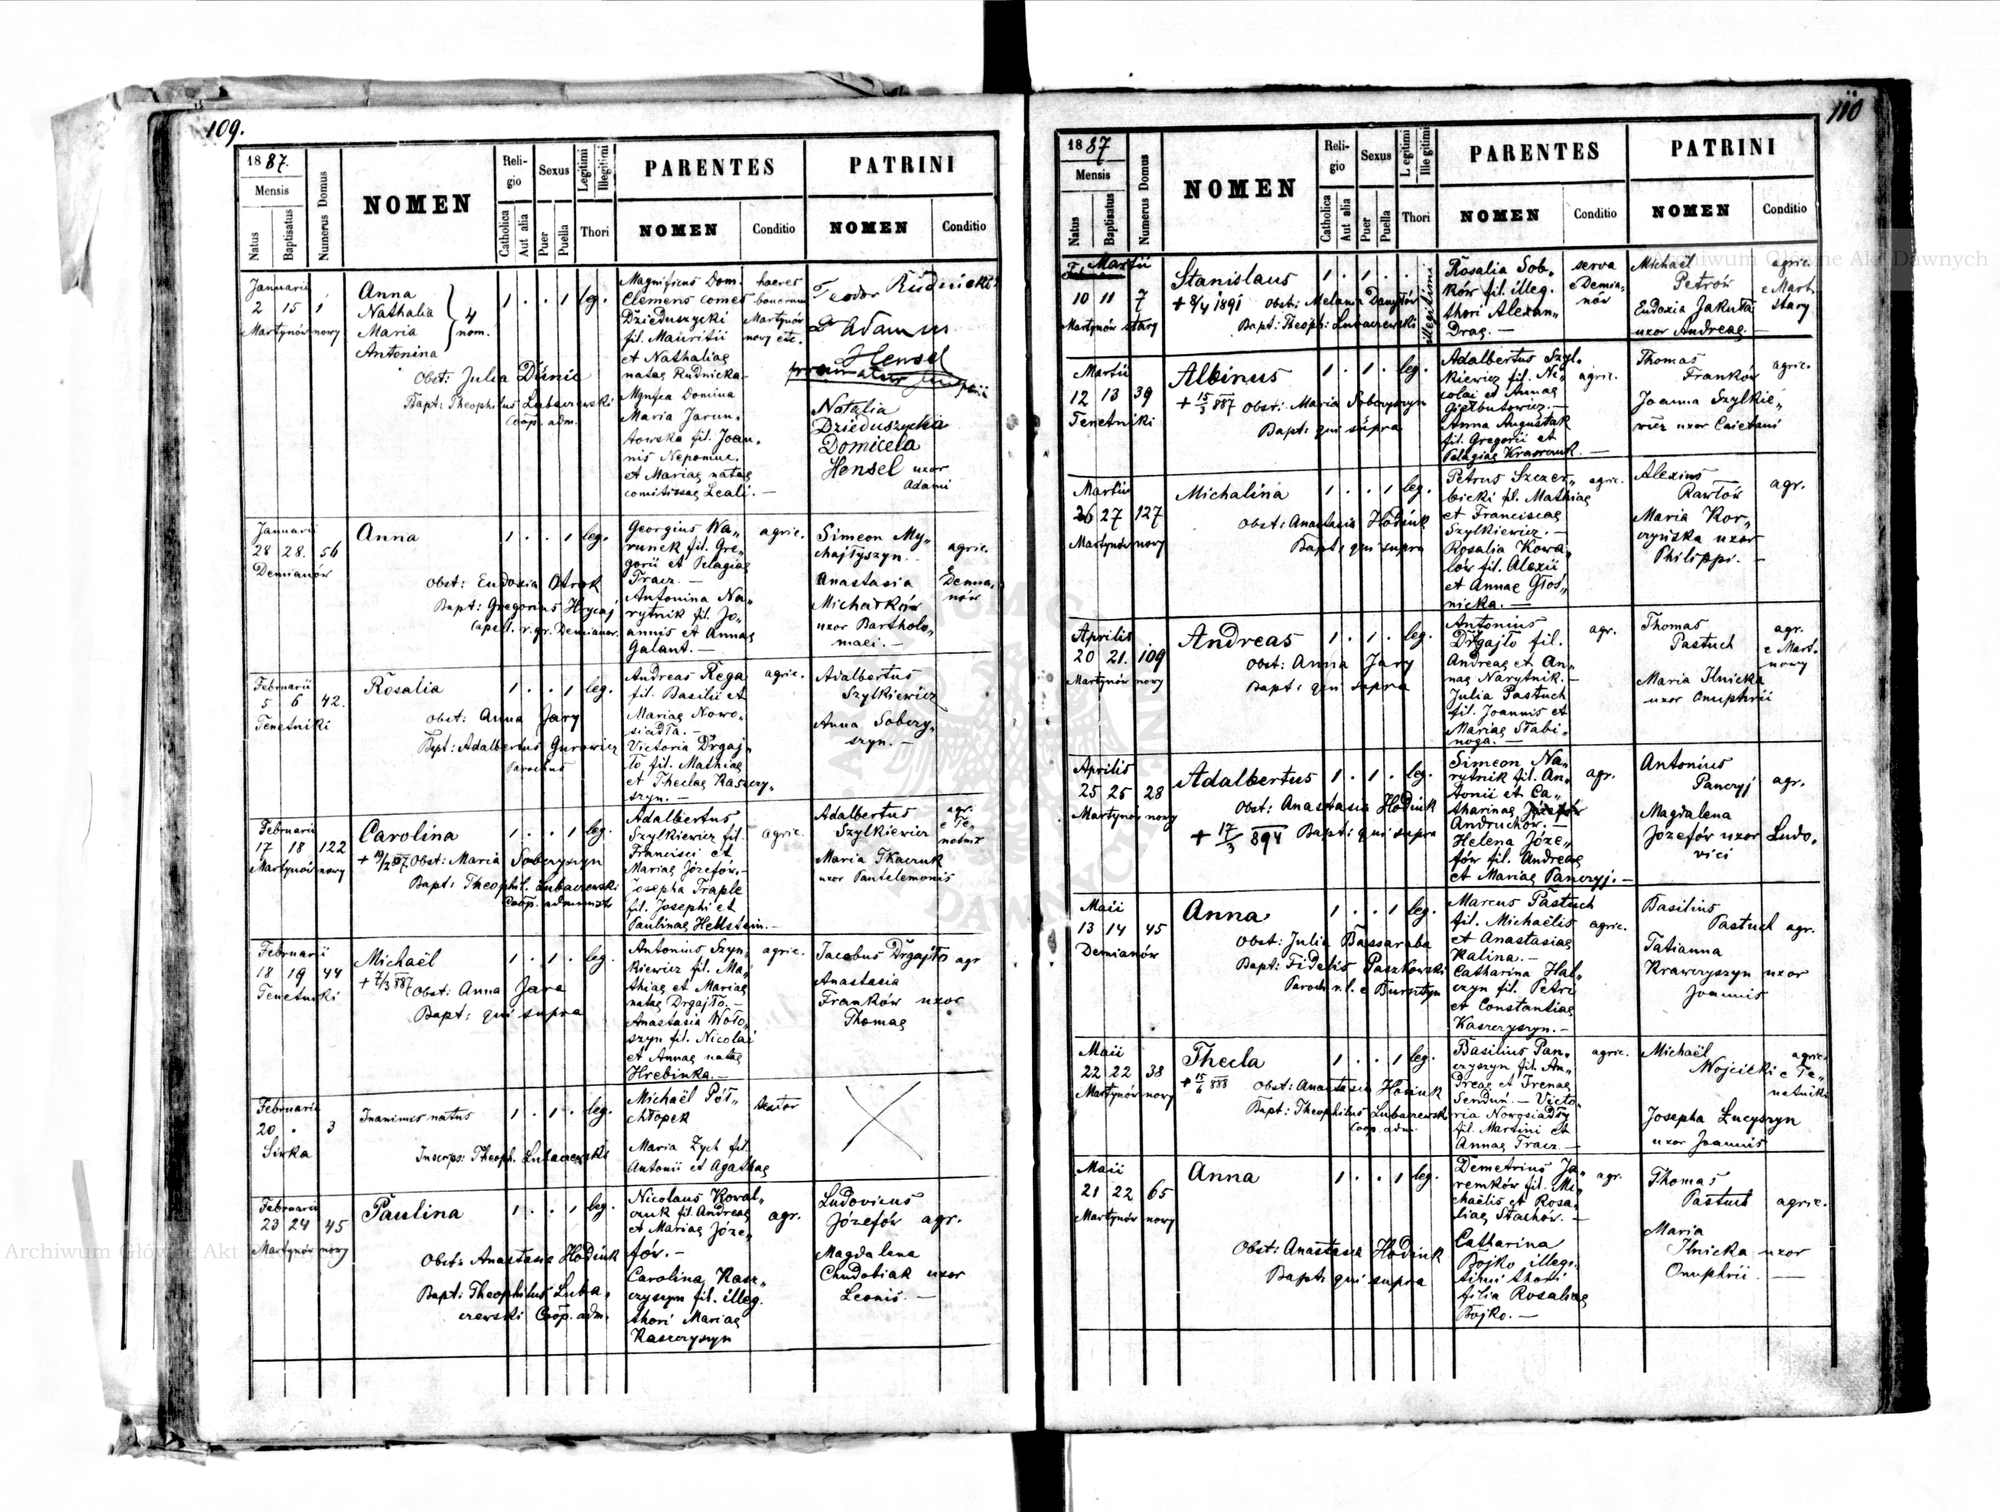 109.
1887.
Mensis
Natus
Baptisatus
Numerus Domus
NOMEN
Religio
Catholica
Aut alia
Sexus
Puer
Puella
Legitimi
Illegitimi
Thori
PARENTES
NOMEN
Conditio
PATRINI
NOMEN
Conditio
Januarii
2 15 1
Martynów nowy
Anna
Nathalia
Maria
Antonina
4
nom.
Obst: Julia Dúnic
Bapt: Theophilus Lubaczewski
Coop. adm.
1 . . 1 leg.
Magnificus Dom.
Clemens comes
Dzieduszycki
fil. Mauritii
et Nathaliae
natae Rudnicka
Mgnfca Domina
Maria Jarun-
towska fil. Joan-
nis Nepomuc.
et Mariae natae
comitissae Leali. —
haeres
bonorum
Martynów
nowy etc.
Teodor Rudnicki
Adam
Hensel
Natalia
Dzieduszycka
Domicela
Hensel uxor
Adami
Januarii
28 28. 56
Demianów
Anna
Obst: Eudoxia Otrok
Bapt: Gregorius Hrycaj
Capell. r. gr. Demianov.
1 . . 1 leg.
Georgius Wa-
runek fil. Gre-
gorii et Pelagiae
Tracz. —
Antonina Na-
rytnik fil. Jo-
annis et Annae
Galant. —
agric.
Simeon My-
chajłyszyn.
Anastasia
Michałków
uxor Bartholo-
maei. —
agric.
e Demia-
nów
Februarii
5 6 42.
Tenetniki
Rosalia
Obst: Anna Jary
Bapt: Adalbertus Gurowicz
Parochus
1 . . 1 leg.
Andreas Rega
fil. Basilii et
Mariae Nowo-
siadła. —
Victoria Drgaj-
ło fil. Mathiae
et Theclae Kaszczy-
szyn. —
agric.
Adalbertus
Szylkiewicz
Anna Sobczy-
szyn. —
Februarii
17 18 122
Martynów nowy
Carolina
+ 19/2 887 Obst: Maria Soberyszyn
Bapt: Theophil. Lubaczewski
Coop. administr
1 . . 1 leg.
Adalbertus
Szylkiewicz fil.
Francisci et
Mariae Józefów. —
Josepha Traple
fil. Josephi et
Paulinae Hellstein. —
agric.
Adalbertus
Szylkiewicz
Maria Tkaczuk
uxor Pantelemonis
agr.
e Te-
netnik
Februarii
18 19 44
Tenetniki
Michaël
+ 7/3 887 Obst: Anna Jara
Bapt: qui supra
1 . 1 . leg.
Antonius Szyn-
kiewicz fil. Ma-
thiae et Mariae
natae Drgajło. —
Anastasia Woło-
szyn fil. Nicolai
et Annae natae
Hrebinka. —
agric.
Jacobus Drgajło agr
Anastasia
Franków uxor
Thomae
Februarii
20 . 3
Siwka
Inanimis natus
Inscrps: Theoph. Lubaczewski
1 . 1 . leg.
Michaël Pół-
chłopek
Maria Zych fil.
Antonii et Agathae
Februarii
23 24 45
Martynów nowy
Paulina
Obst: Anastasia Hodiuk
Bapt: Theophilus Luba-
czewski Coop. adm.
1 . . 1 leg.
Nicolaus Kowal-
czuk fil. Andreae
et Mariae Józe-
fów. —
Carolina Kasz-
czyszyn fil. illeg.
thori Mariae
Kaszczyszyn
agr.
Ludovicus
Józefów agr.
Magdalena
Chudobiak uxor
Leonis. —
110
1887
Mensis
Natus
Baptisatus
Numerus Domus
NOMEN
Religio
Catholica
Aut alia
Sexus
Puer
Puella
Legitimi
Illegitimi
Thori
PARENTES
NOMEN
Conditio
PATRINI
NOMEN
Conditio
Martii
10 11 7
Martynów stary
Stanislaus
+ 8/4 1891 Obst: Melania Danyłów
Bapt: Theoph: Lubaczewski
1 . 1 . .
illegitimi
Rosalia Sob-
ków fil. illeg.
thori Alexan-
drae. —
serva
e Demia-
nów
Michaël
Petrów
Eudoxia Jakuła
uxor Andreae —
agric.
e Mart.
stary
Martii
12 13 39
Tenetniki
Albinus
+ 15/3 887 Obst: Maria Soberyszyn
Bapt: qui supra
1 . 1 . leg.
Adalbertus Szyl-
kiewicz fil. Ni-
colai et Annae
Giełbutowicz. —
Anna Augustak
fil. Gregorii et
Pelagiae Krawczuk. —
agric.
Thomas
Franków
Joanna Szylkie-
wicz uxor Caietani
agric.
Martii
26 27 127
Martynów nowy
Michalina
Obst: Anastasia Hodiuk
Bapt: qui supra
1 . . 1 leg.
Petrus Szczer-
bicki fil. Mathiae
et Franciscae
Szylkiewicz. —
Rosalia Kowa-
lów fil. Alexii
et Annae Głos-
nicka. —
agric.
Alexius
Pawłów
Maria Kor-
czyńska uxor
Philippi. —
agr.
Aprilis
20 21. 109
Martynów nowy
Andreas
Obst: Anna Jary
Bapt: qui supra
1 . 1 . leg.
Antonius
Drgajło fil.
Andreae et An-
nae Narytnik. —
Julia Pastuch
fil. Joannis et
Mariae Słabi-
noga. —
agr.
Thomas
Pastuch
Maria Ilnicka
uxor Onuphrii
agr.
e Mart.
nowy
Aprilis
25 25 28
Martynów nowy
Adalbertus
Obst: Anastasia Hodiuk
+ 17/3 894 Bapt: qui supra
1 . 1 . leg.
Simeon Na-
rytnik fil. An-
tonii et Ca-
tharinae
Andruchów. —
Helena Józe-
fów fil. Andreae
et Mariae Panczyj. —
agr.
Antonius
Panczyj
Magdalena
Józefów uxor Ludo-
vici
agr.
Maii
13 14 45
Demianów
Anna
Obst: Julia Bassaraba
Bapt: Fidelis Paszkowski
Paroch r. l. e Bursztyn
1 . . 1 leg.
Marcus Pastuch
fil. Michaëlis
et Anastasiae
Kalina. —
Catharina Hal-
czyn fil. Petri
et Constantiae
Kaszczyszyn. —
agric.
Basilius
Pastuch agr.
Tatianna
Krawczyszyn uxor
Joannis
Maii
22 22 38
Martynów nowy
Thecla
+ 15/6 888 Obst: Anastasia Hodiuk
Bapt: Theophilus Lubaczewski
Coop. adm.
1 . . 1 leg.
Basilius Pan-
czyszyn fil. An-
dreae et Irenae
Senduń. — Victo-
ria Nowosiadły
fil. Martini et
Annae Tracz. —
agric.
Michaël
Wojcicki
Josepha Łucyszyn
uxor Joannis
agric.
e Te-
netniki
Maii
21 22 65
Martynów nowy
Anna
Obst: Anastasia Hodiuk
Bapt: qui supra
1 . . 1 leg.
Demetrius Ja-
remków fil. Mi-
chaëlis et Rosa-
liae Stachów. —
Catharina
Bojko illegi-
timi thori
filia Rosaliae
Bojko. —
agr.
Thomas
Pastuch agric.
Maria
Ilnicka uxor
Onuphrii. —
Archiwum Główne Akt Dawnych